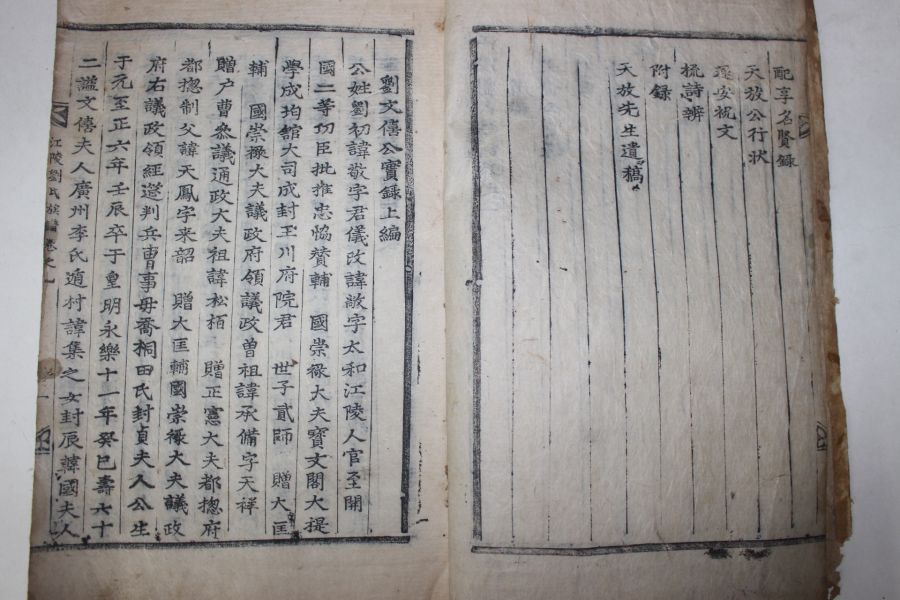 配享名賢錄
天放公行狀
還安祝文
梳詩辨
附錄
天放先生遺稿
劉文僖公實錄上編
公姓劉初諱敬字君儀改諱敞字太和江陵人官至開
國二等功臣批推忠恊賛輔 國崇祿大夫寳文閣大提
學成均舘大司成封玉川府院君 世子貳師 贈大匡
輔 國崇祿大夫議政府領議政曾祖諱承備字天祥
贈户曹叅議通政大夫祖諱松栢 贈正憲大夫都摠府
都摠制父諱天鳳字來韶 贈大匡輔國崇祿大夫議政
府右議政領經筵判兵曹事母喬桐田氏封貞夫人公生
于元至正六年壬辰卒于皇明永樂十一年癸巳壽六十
二謚文僖夫人廣州李氏遁村諱集之女封辰韓國夫人
江陵劉氏族譜卷之一